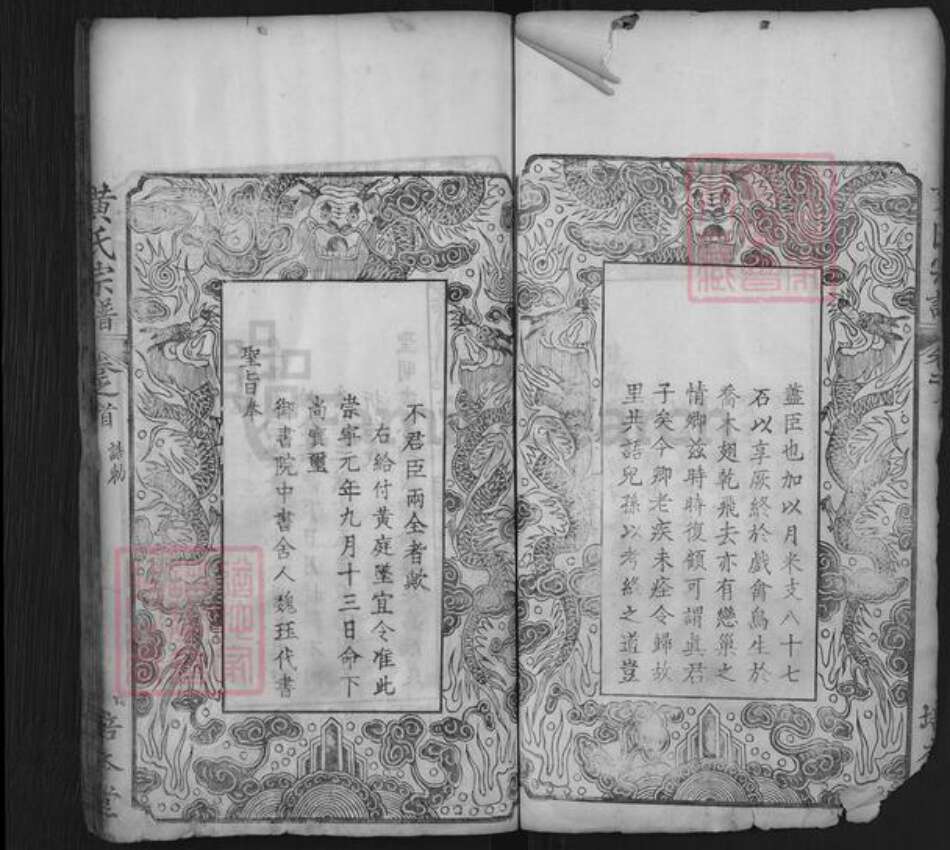 藎臣也加以月米支八十七
石以享厥終於戲禽鳥生於
喬木翅乾飛去亦有戀巢之
情卿玆時時復顧可謂眞君
子矣今卿老疾未痊令歸故
里共語兒孫以考終之道豈
不君臣兩全者歟
右給付黃庭墜宜令准此
崇寧元年九月十三日命下
尚寳璽
御書院中書舍人魏珏代書
聖旨奉
黃氏宗譜
卷之首
誥勅